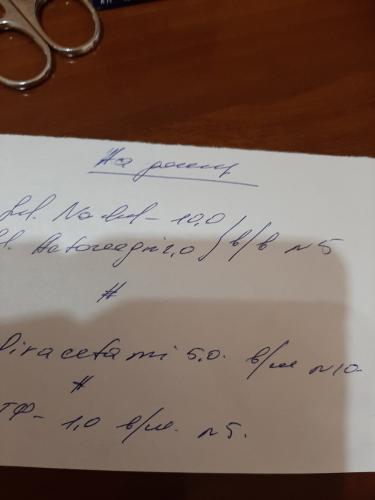 На рецеп
Sol. Na Cl - 10,0
l. Actovegini 2,0 } в/в N5
#
Piracetami 5.0. в/м N10.
#
АТФ - 1,0 в/м. N5.